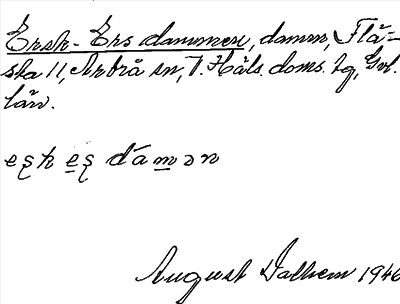 Ersk-Ers dammen, damm, Flä-
ska 11, Arbrå sn, V. Häls. doms. tg, Gvl.
län.
August Dalhem 1946